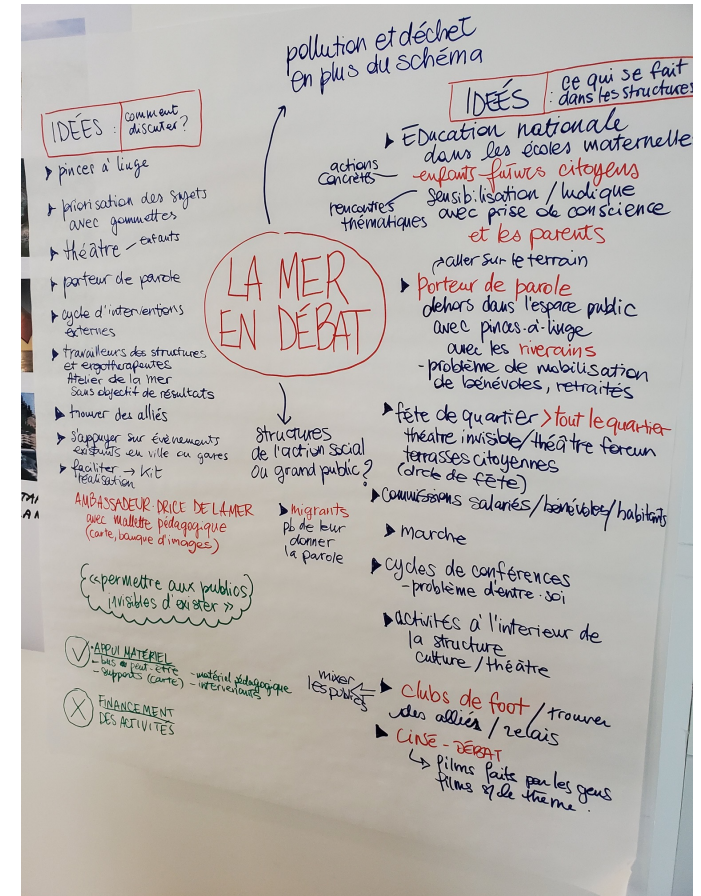 pollution et déchet
en plus du schéma
LA MER
EN DÉBAT
IDÉES : comment
discuter?
▸ pinces à linge
▸ priorisation des sujets
avec gommettes
▸ théâtre – enfants
▸ porteur de parole
▸ cycle d'interventions
externes
▸ travailleurs des structures
et ergothérapeutes
Atelier de la mer
Sans objectif de résultats
▸ trouver des alliés
▸ s'appuyer sur évènements
existants en ville ou gares
▸ faciliter → Kit
réalisation
AMBASSADEUR·DRICE DE LA MER
avec mallette pédagogique
(carte, banque d'images)
«permettre aux publics
invisibles d'exister»
✓ • APPUI MATÉRIEL
– bus peut-être
– supports (carte)
– matériel pédagogique
– intervenants
X FINANCEMENT
DES ACTIVITÉS
structures
de l'action social
ou grand public?
▸ migrants
pb de leur
donner
la parole
IDÉES : ce qui se fait
dans les structures
▸ Education nationale
dans les écoles maternelle
actions
concrètes
– enfants-futurs citoyens
rencontres
thématiques
sensibilisation / ludique
avec prise de conscience
et les parents
↗ aller sur le terrain
▸ Porteur de parole
dehors dans l'espace public
avec pinces-à-linge
avec les riverains
– problème de mobilisation
de bénévoles, retraités
▸ fête de quartier > tout le quartier
théatre invisible/théâtre forum
terrasses citoyennes
(droit de fête)
▸ commissions salariés/bénévoles/habitants
▸ marche
▸ cycles de conférences
– problème d'entre-soi
▸ activités à l'interieur de
la structure
culture / théâtre
mixer
les publics
▸ clubs de foot / trouver
des alliés / relais
▸ CINÉ - DÉBAT
↳ films faits par les gens
films s/ le thème.